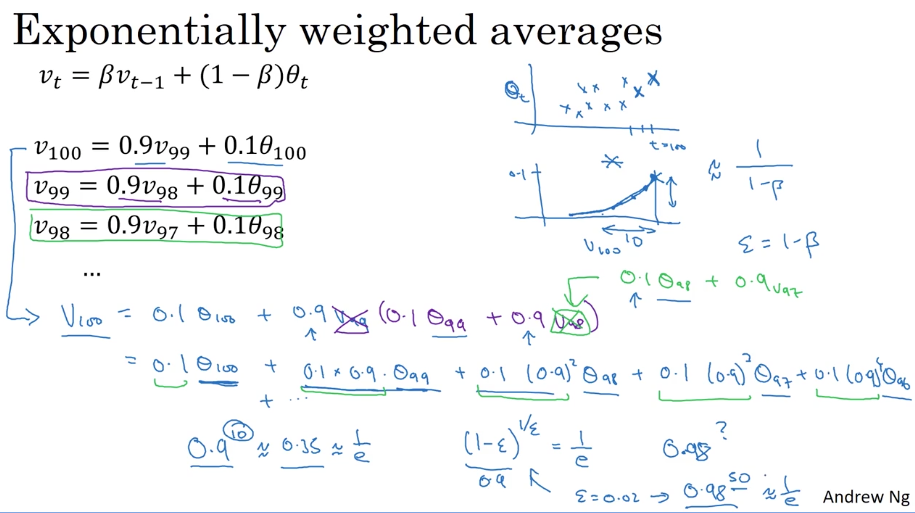 Exponentially weighted averages
v_t = βv_{t−1} + (1 − β)θ_t
θ_t
t=100
v_100 = 0.9v_99 + 0.1θ_100
v_99 = 0.9v_98 + 0.1θ_99
v_98 = 0.9v_97 + 0.1θ_98
...
0.1
V_100 10
≈ 1/(1-β)
ε = 1-β
0.1 θ_98 + 0.9 v_97
V_100 = 0.1 θ_100 + 0.9 V_99 (0.1 θ_99 + 0.9 V_98)
= 0.1 θ_100 + 0.1 × 0.9 · θ_99 + 0.1 (0.9)^2 θ_98 + 0.1 (0.9)^3 θ_97 + 0.1 (0.9)^4 θ_96
+ ...
0.9^10 ≈ 0.35 ≈ 1/e (1-ε)^{1/ε} = 1/e 0.98^?
0.9
ε = 0.02 → 0.98^50 ≈ 1/e
Andrew Ng